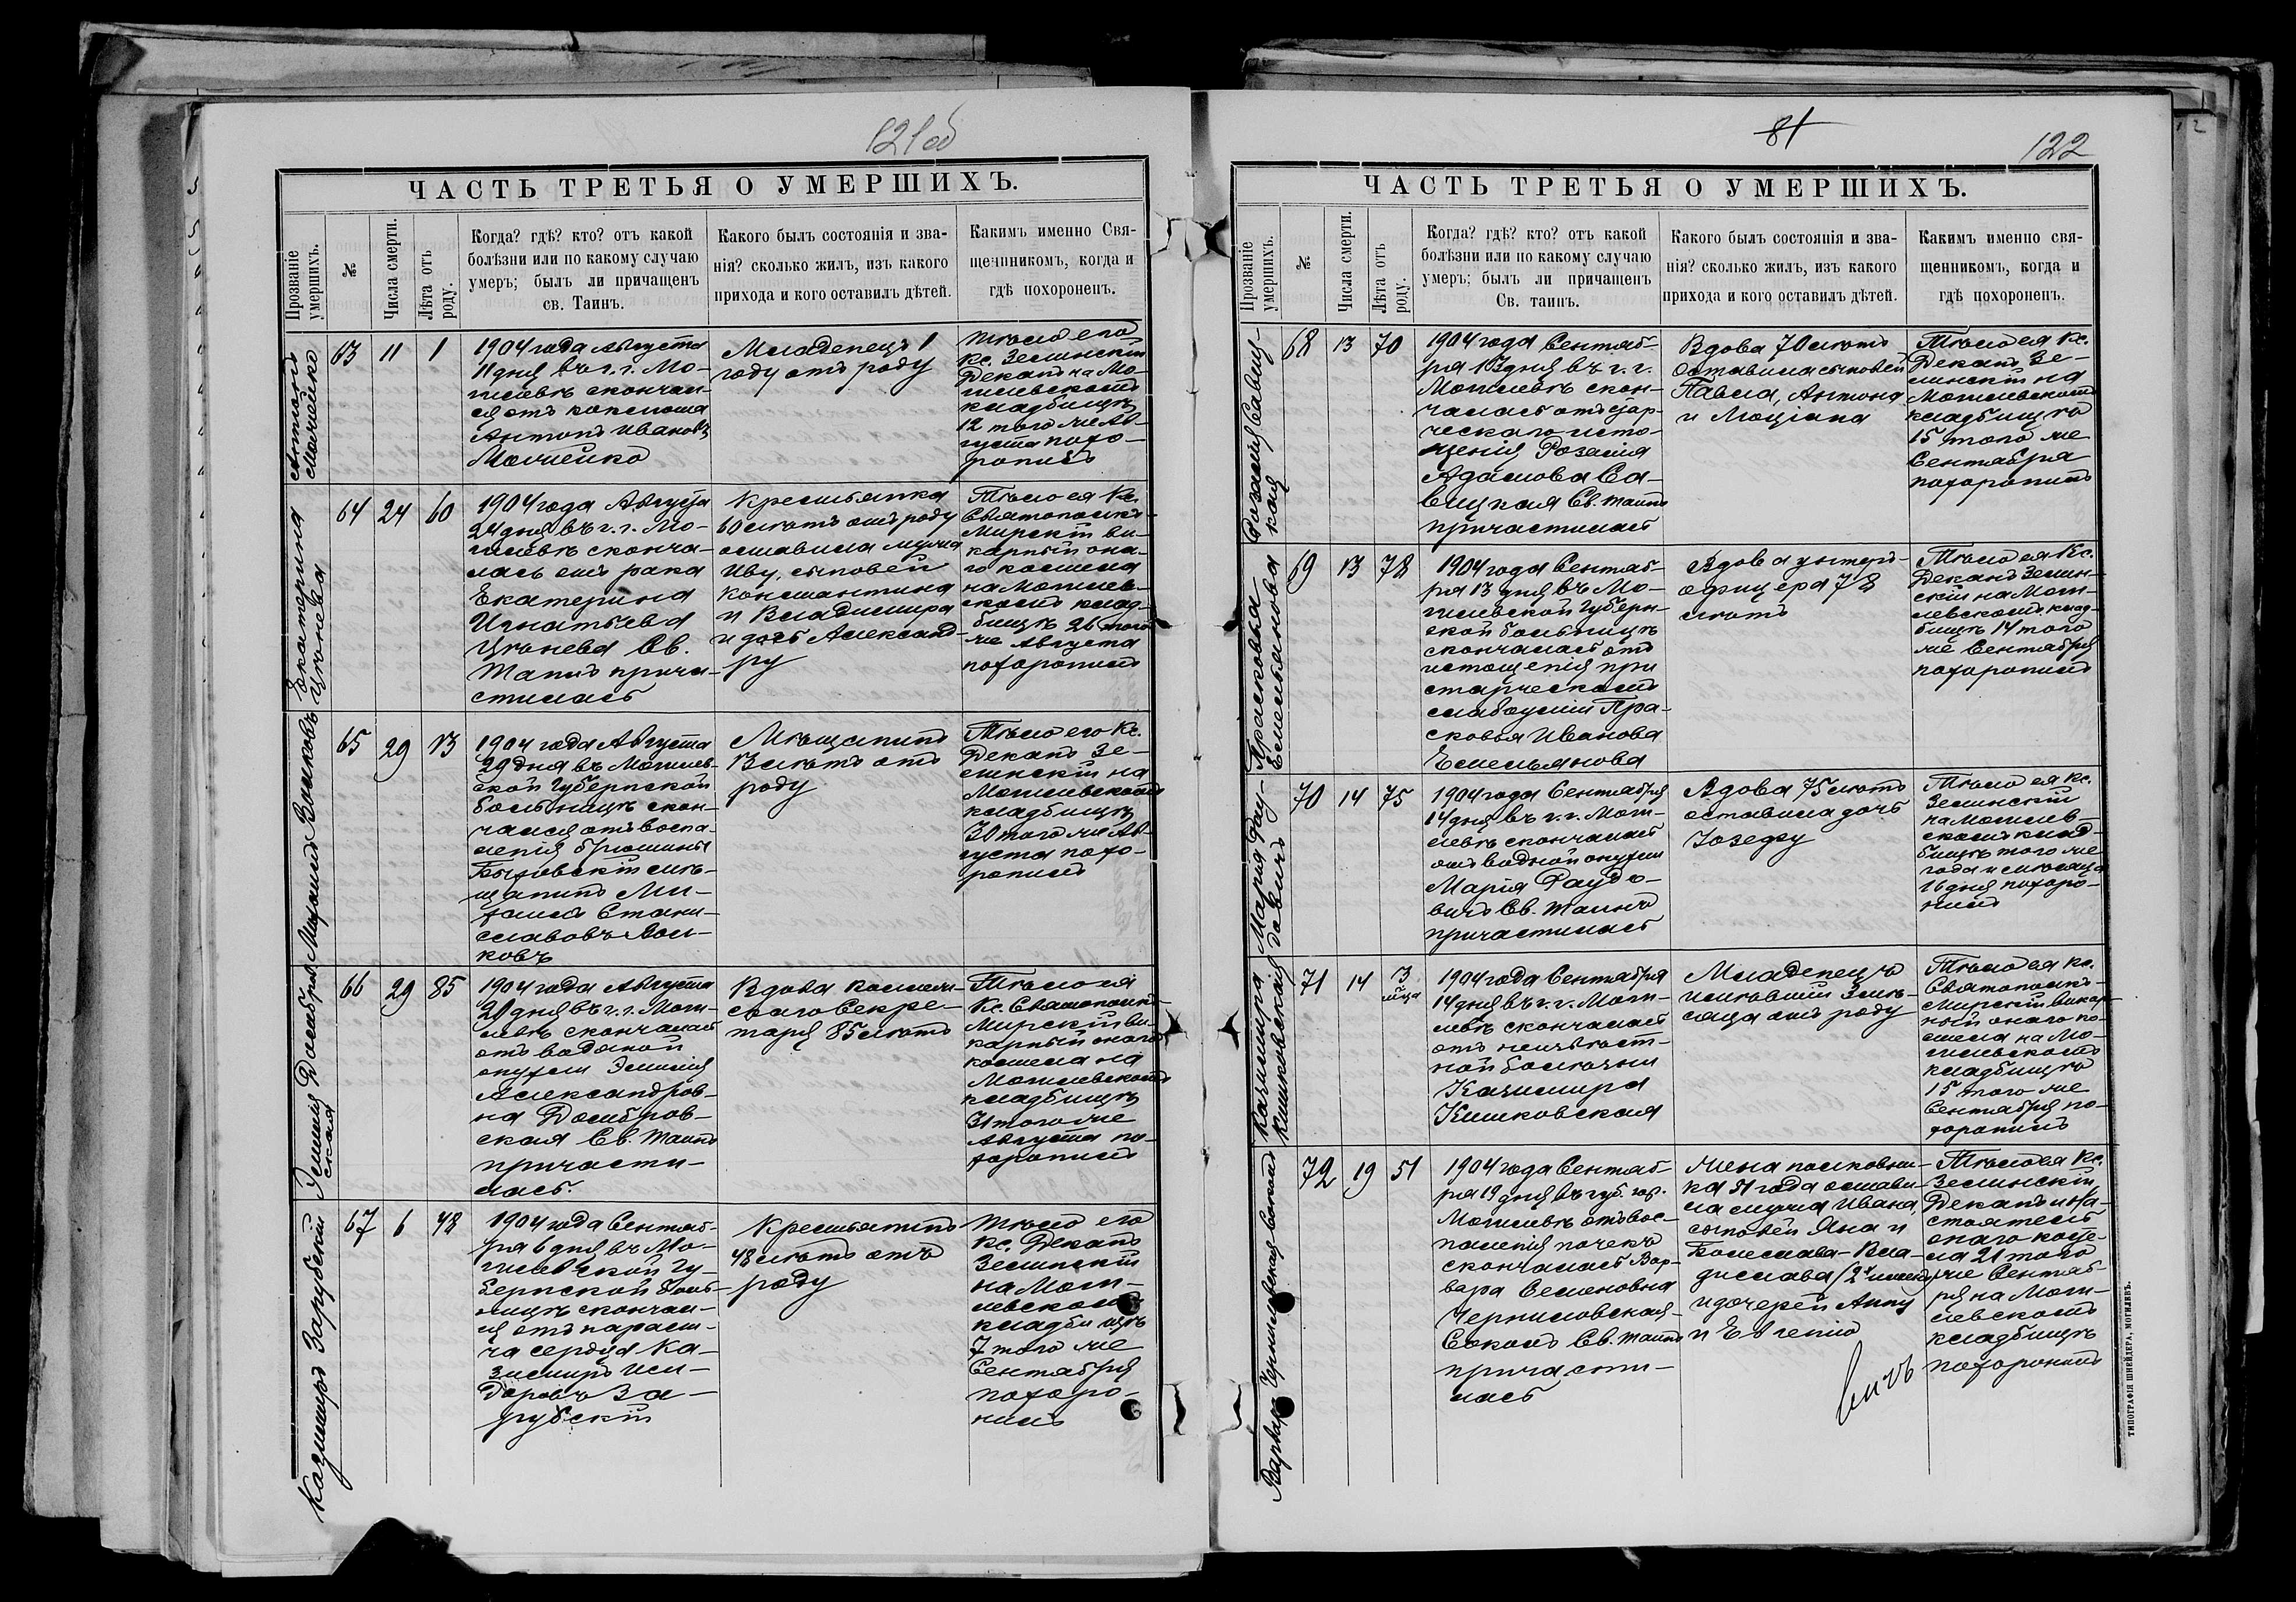 121 об
ЧАСТЬ ТРЕТЬЯ О УМЕРШИХЪ.
Прозваніе умершихъ.
№
Числа смерти.
Лѣта отъ роду.
Когда? гдѣ? кто? отъ какой
болѣзни или по какому случаю
умеръ; былъ ли причащенъ
св. Таинъ.
Какого былъ состоянія и зва-
нія? сколько жилъ, изъ какого
прихода и кого оставилъ дѣтей.
Какимъ именно Свя-
щенникомъ, когда и
гдѣ похороненъ.
Антоній
Молчейко
63
11
1
1904 года Августа
11 дня въ г. г. Мо-
гилевѣ скончал-
ся отъ коклюша
Антонъ Ивановъ
Молчейко
Младенецъ 1
году отъ роду
Тѣло его
Кс. Зелинскій
Деканъ на Мо-
гилевскомъ
кладбищѣ
12 того же Ав-
густа похо-
ронилъ
Екатерина
Цѣонева
64
24
60
1904 года Августа
24 дня въ г. г. Мо-
гилевѣ сконча-
лась отъ рака
Екатерина
Игнатьева
Цѣонева Св.
Таинъ прича-
стилась
Крестьянка
60 лѣтъ отъ роду
оставила мужа
Иву, сыновей
Константина
и Владимира
и дочь Александ-
ру
Тѣло ея Кс.
Святополкъ-
Мирскій ви-
карный она-
го костела
на Могилев-
скомъ клад-
бищѣ 26 того
же Августа
похоронилъ
Михаилъ Волковъ
65
29
13
1904 года Августа
29 дня въ Могилев-
ской Губернской
больницѣ скон-
чался отъ воспа-
ленія брюшины
Быховскій мѣ-
щанинъ Ми-
хаилъ Стани-
славовъ Вол-
ковъ
Мѣщанинъ
13 лѣтъ отъ
роду
Тѣло его Кс.
Деканъ Зе-
линскій на
Могилевскомъ
кладбищѣ
30 того же Ав-
густа похо-
ронилъ
Эмилія Домбров
ская
66
29
85
1904 года Августа
29 дня въ г. г. Моги-
левѣ скончалась
отъ водяной
опухли Эмилія
Александров-
на Домбров-
ская Св. Таинъ
причасти-
лась.
Вдова коллеж-
скаго Секре-
таря 85 лѣтъ
Тѣло ея
Кс. Святополкъ-
Мирскій ви-
карный онаго
костела на
Могилевскомъ
кладбищѣ
31 того же
Августа по-
хоронилъ
Казимиръ Зарубскій
67
6
48
1904 года Сентяб-
ря 6 дня въ Мо-
гилевской Гу-
бернской боль-
ницѣ скончал-
ся отъ парали-
ча сердца Ка-
зимиръ Иси-
доровъ За-
рубскій
Крестьянинъ
48 лѣтъ отъ
роду
Тѣло его
Кс. Деканъ
Зелинскій
на Моги-
левскомъ
кладбищѣ
7 того же
Сентября
похоро-
нилъ
81
122
ЧАСТЬ ТРЕТЬЯ О УМЕРШИХЪ.
Прозваніе умершихъ.
№
Числа смерти.
Лѣта отъ роду.
Когда? гдѣ? кто? отъ какой
болѣзни или по какому случаю
умеръ; былъ ли причащенъ
Св. таинъ.
Какого былъ состоянія и зва-
нія? сколько жилъ, изъ какого
прихода и кого оставилъ дѣтей.
Какимъ именно свя-
щенникомъ, когда и
гдѣ похороненъ.
Розалія Савиц-
кая
68
13
70
1904 года Сентяб-
ря 13 дня въ г. г.
Могилевѣ скон-
чалась отъ стар-
ческаго исто-
щенія Розалія
Адамова Са-
вицкая Св. таинъ
причастилась
Вдова 70 лѣтъ
оставила сыновей
Павла, Антона
и Люціана
Тѣло ея Кс.
Деканъ Зе-
линскій на
Могилевскомъ
кладбищѣ
15 того же
Сентября
похоронилъ
Прасковья
Емельянова
69
13
78
1904 года Сентяб-
ря 13 дня въ Мо-
гилевской Губерн-
ской больницѣ
скончалась отъ
истощенія при
старческомъ
слабоуміи Пра-
сковья Иванова
Емельянова
Вдова унтеръ-
офицера 78
лѣтъ
Тѣло ея Кс.
Деканъ Зелин-
скій на Моги-
левскомъ клад-
бищѣ 14 того
же Сентября
похоронилъ
Марія Рау-
довичъ
70
14
75
1904 года Сентября
14 дня въ г. г. Моги-
левѣ скончалась
отъ водной опухли
Марія Раудо-
вичъ Св. Таинъ
причастилась
Вдова 75 лѣтъ
оставила дочь
Іозефу
Тѣло ея Кс.
Зелинскій
на Могилев-
скомъ клад-
бищѣ того же
года и мѣсяца
16 дня похоро-
нилъ
Казимира
Кишковская
71
14
3
м-ца
1904 года Сентября
14 дня въ г. г. Моги-
левѣ скончалась
отъ неизвѣст-
ной болѣзни
Казимира
Кишковская
Младенецъ
имѣвшій 3 мѣ-
сяца отъ роду
Тѣло ея Кс.
Святополкъ-
Мирскій викар-
ный онаго ко-
стела на Мо-
гилевскомъ
кладбищѣ
15 того же
Сентября по-
хоронилъ
Варвара Чернилевская Соколъ
72
19
51
1904 года Сентяб-
ря 19 дня въ губ. гор.
Могилевѣ отъ вос-
паленія почекъ
скончалась Вар-
вара Семеновна
Чернилевская-
Соколъ Св. таинъ
причасти-
лась
Жена полковни-
ка 51 года остави-
ла мужа Ивана
сыновей Яна и
Болеслава-Вла-
дислава (2 имени)
и дочерей Анну
и Евгенію
Тѣло ея Кс.
Зелинскій
Деканъ и На-
стоятель
онаго косте-
ла 21 того
же Сентяб-
ря на Моги-
левскомъ
кладбищѣ
похоронилъ
вичъ
ТИПОГРАФІЯ ШНЕЙДЕРА, МОГИЛЕВЪ.